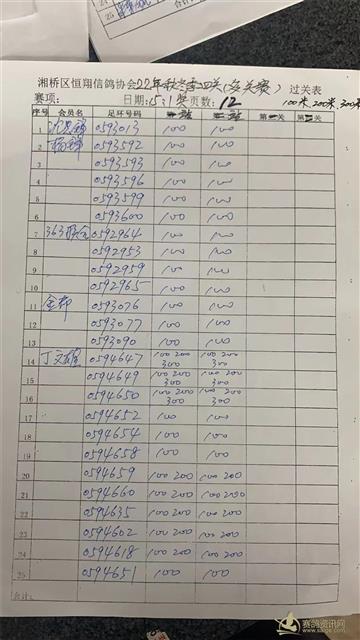 湘桥区恒翔信鸽协会22年秋冬季四关(多关赛)过关表
赛项: 日期: 页数: 12 100米,200米,300米
序号 会员名 足环号码 第 关 第 关
1 0593013 100 100
2 0593592 100 100
3 0593593 100 100
4 0593596 100 100
5 0593599 100 100
6 0593600 100 100
7 363联合 0592964 100 100
8 0592953 100 100
9 0592959 100 100
10 0592965 100 100
11 0593076 100 100
12 0593077 100 100
13 0593090 100 100
14 丁文雄 0594647 100 200 300 100 200 300
15 0594649 100 200 300 100 200 300
16 0594650 100 200 300 100 200 300
17 0594652 100 100
18 0594654 100 100
19 0594658 100 100
20 0594659 100 200 100 200
21 0594660 100 200 100 200
22 0594635 100 200 100 200
23 0594602 100 200 100 200
24 0594618 100 200 100 200
25 0594651 100 100
合计:
赛鸽资讯网
www.saige.com